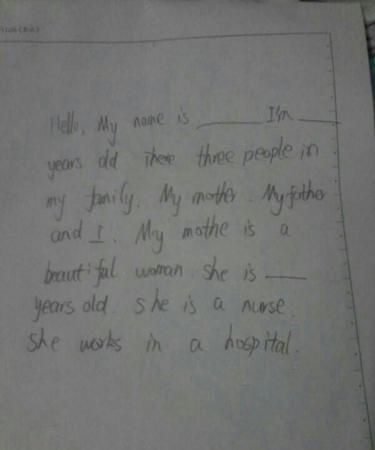 Hello, My name is ______ I'm ____
years old There three people in
my family. My mother. My father
and I. My mothe is a
beautiful woman she is ____
years old. she is a nurse.
she works in a hospital.